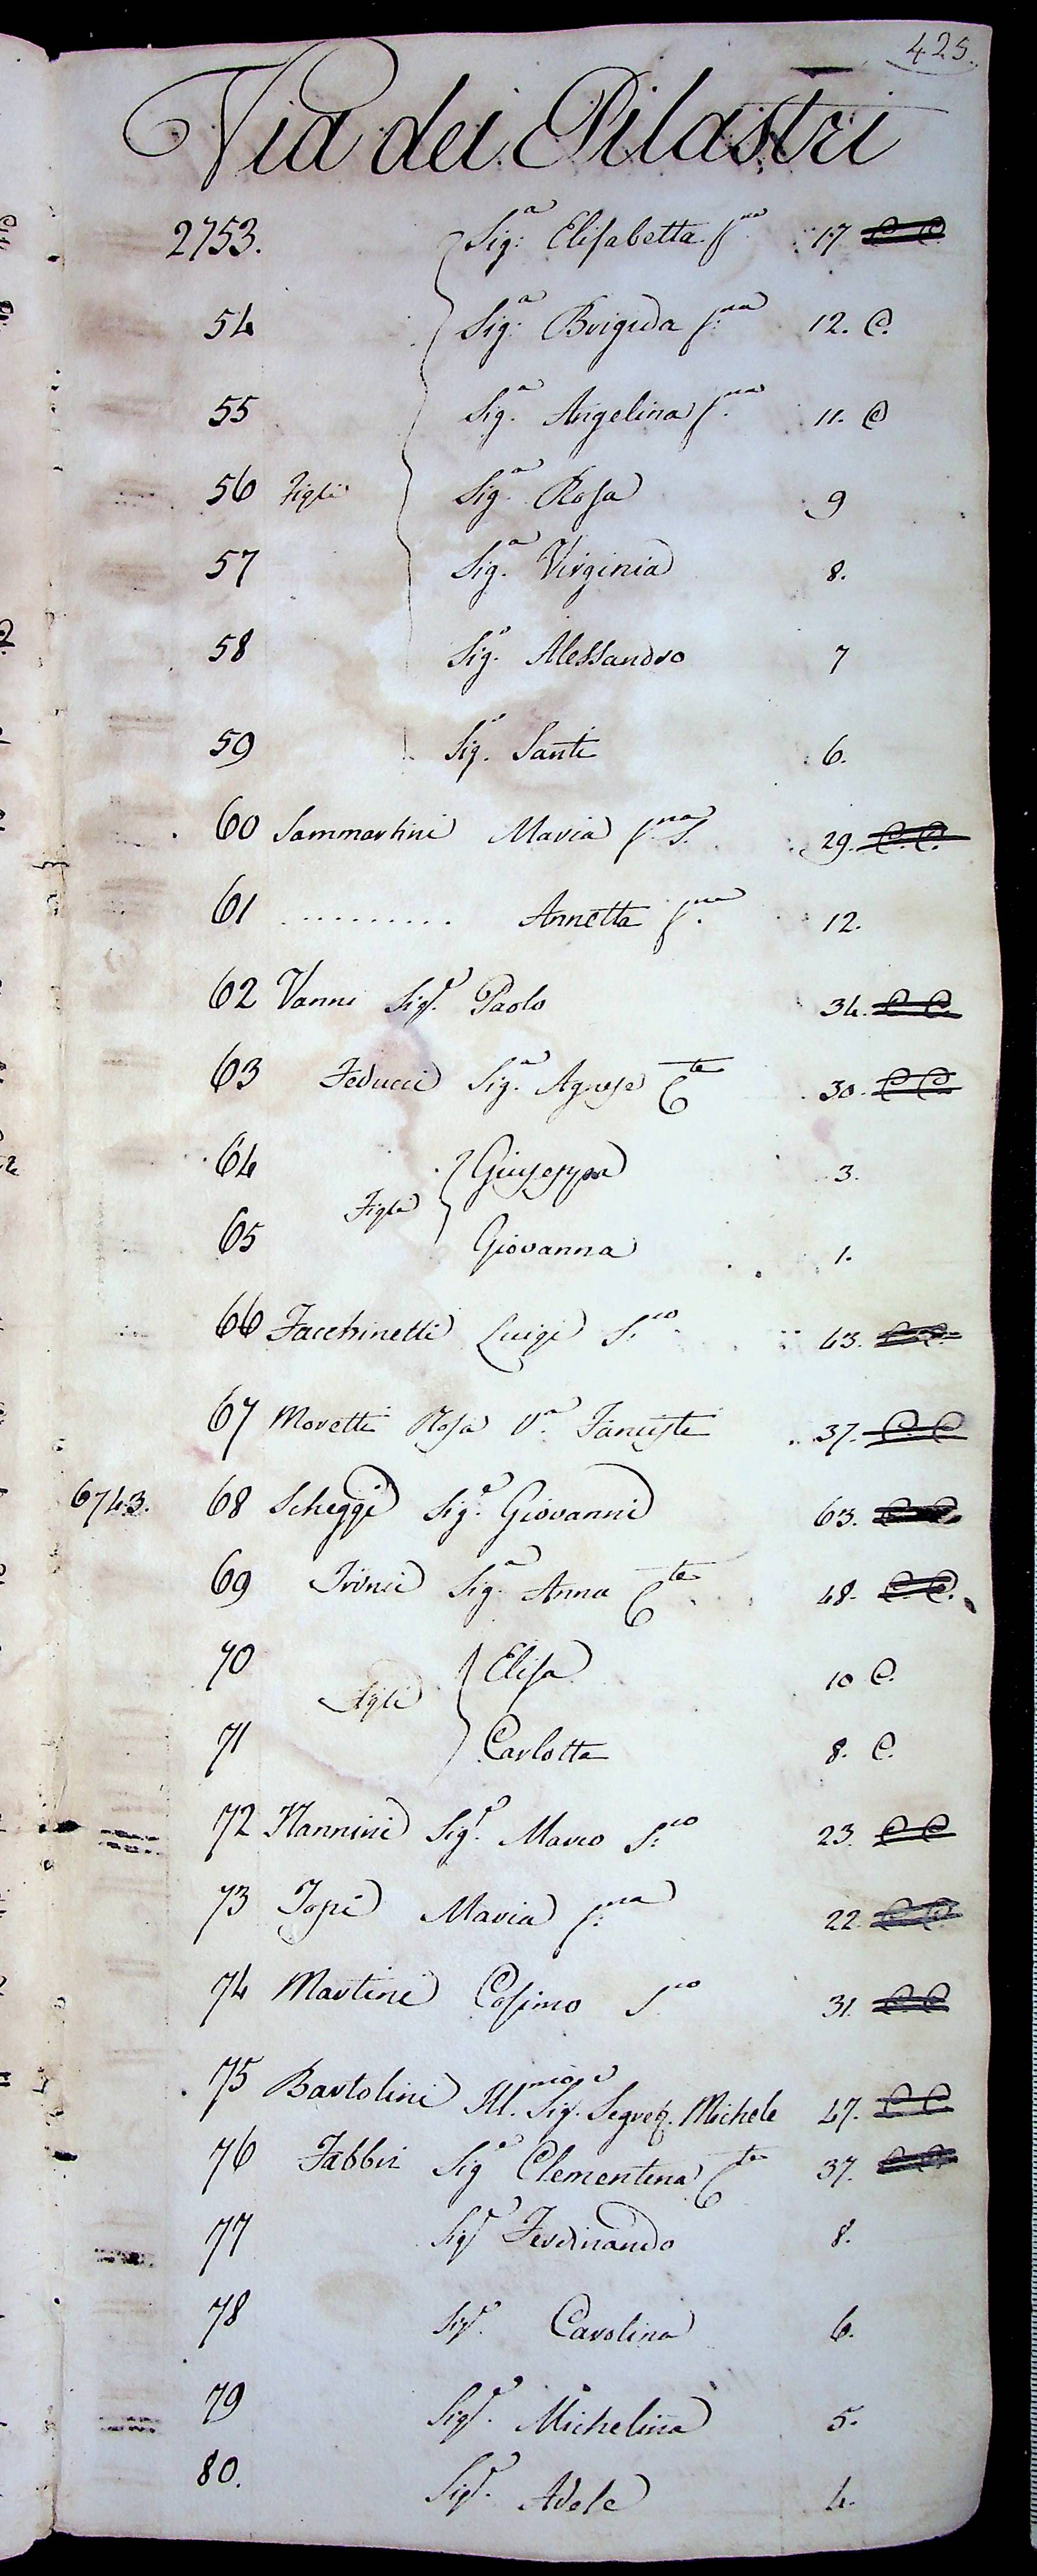 425.
Via dei Pilastri
2753. Sig:ª Elisabetta f.na 17 C. C.
54 Sig:ª Brigida f:na 12. C.
55 Sig.ª Angelina f.na 11. C
56 Figli Sig.ª Rosa 9
57 Sig.ª Virginia 8.
58 Sig.e Alessandro 7
59 Sig.e Santi 6.
60 Sammartini Maria f.na S. 29. C. C.
61 .......... Annetta f.na 12.
62 Vanni Sig.r Paolo 34. C C.
63 Feducci Sig.ª Agnese C.te 30. C C.
64 Giuseppa 3.
Figli
65 Giovanna 1.
66 Facchinetti Luigi S.co 43. C C.
67 Moretti Rosa V.ª 37. C. C
6743. 68 Scheggi Sig.e Giovanni 63. C C.
69 Sig.ª Anna C.te 48. C. C.
70 Elisa 10 C.
Figli
71 Carlotta 8. C.
72 Nannini Sig.r Marco S:co 23. C C
73 Maria f:na 22. C C.
74 Martini Cosimo S.co 31. C C
75 Bartolini Ill.mo Sig.e Segret. Michele 47. C C.
76 Fabbri Sig.ª Clementina C.te 37. C C.
77 Sig.r Ferdinando 8.
78 Sig.r Carolina 6.
79 Sig.r Michelina 5.
80. Sig.r Adele 4.